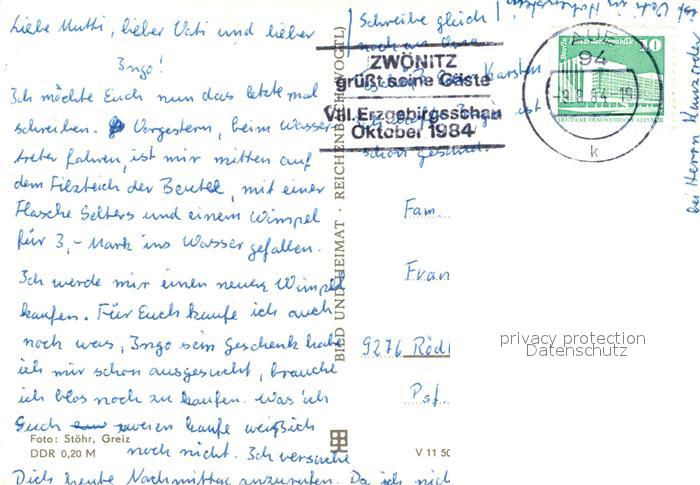 Liebe Mutti, lieber Vati und lieber
Ingo!
Ich möchte Euch nun das letzte mal
schreiben. Vorgestern, beim Wasser-
treter fahren, ist mir mitten auf
dem Filzteich der Beutel, mit einer
Flasche Selters und einem Wimpel
für 3,- Mark ins Wasser gefallen.
Ich werde mir einen neuen Wimpel
kaufen. Für Euch kaufe ich auch
noch was, Ingo sein Geschenk habe
ich mir schon ausgesucht, brauche
ich blos noch zu kaufen. Was ich
Euch zweien kaufe weiß ich
noch nicht. Ich versuche
Dich heute Nachmittag anzurufen. Da ich
Foto: Stöhr, Greiz
DDR 0,20 M
BILD UND HEIMAT · REICHENBACH (VOGTL)
V 11 50
Schreibe gleich
noch
Karsten
ist
schon gesund.
ZWÖNITZ
grüßt seine Gäste
VIII. Erzgebirgsschau
Oktober 1984
AUE
94
-9.8.84-19
k
10
Fam.
Fran
9276 Rödl
Psf.
bei Herrn
privacy protection
Datenschutz